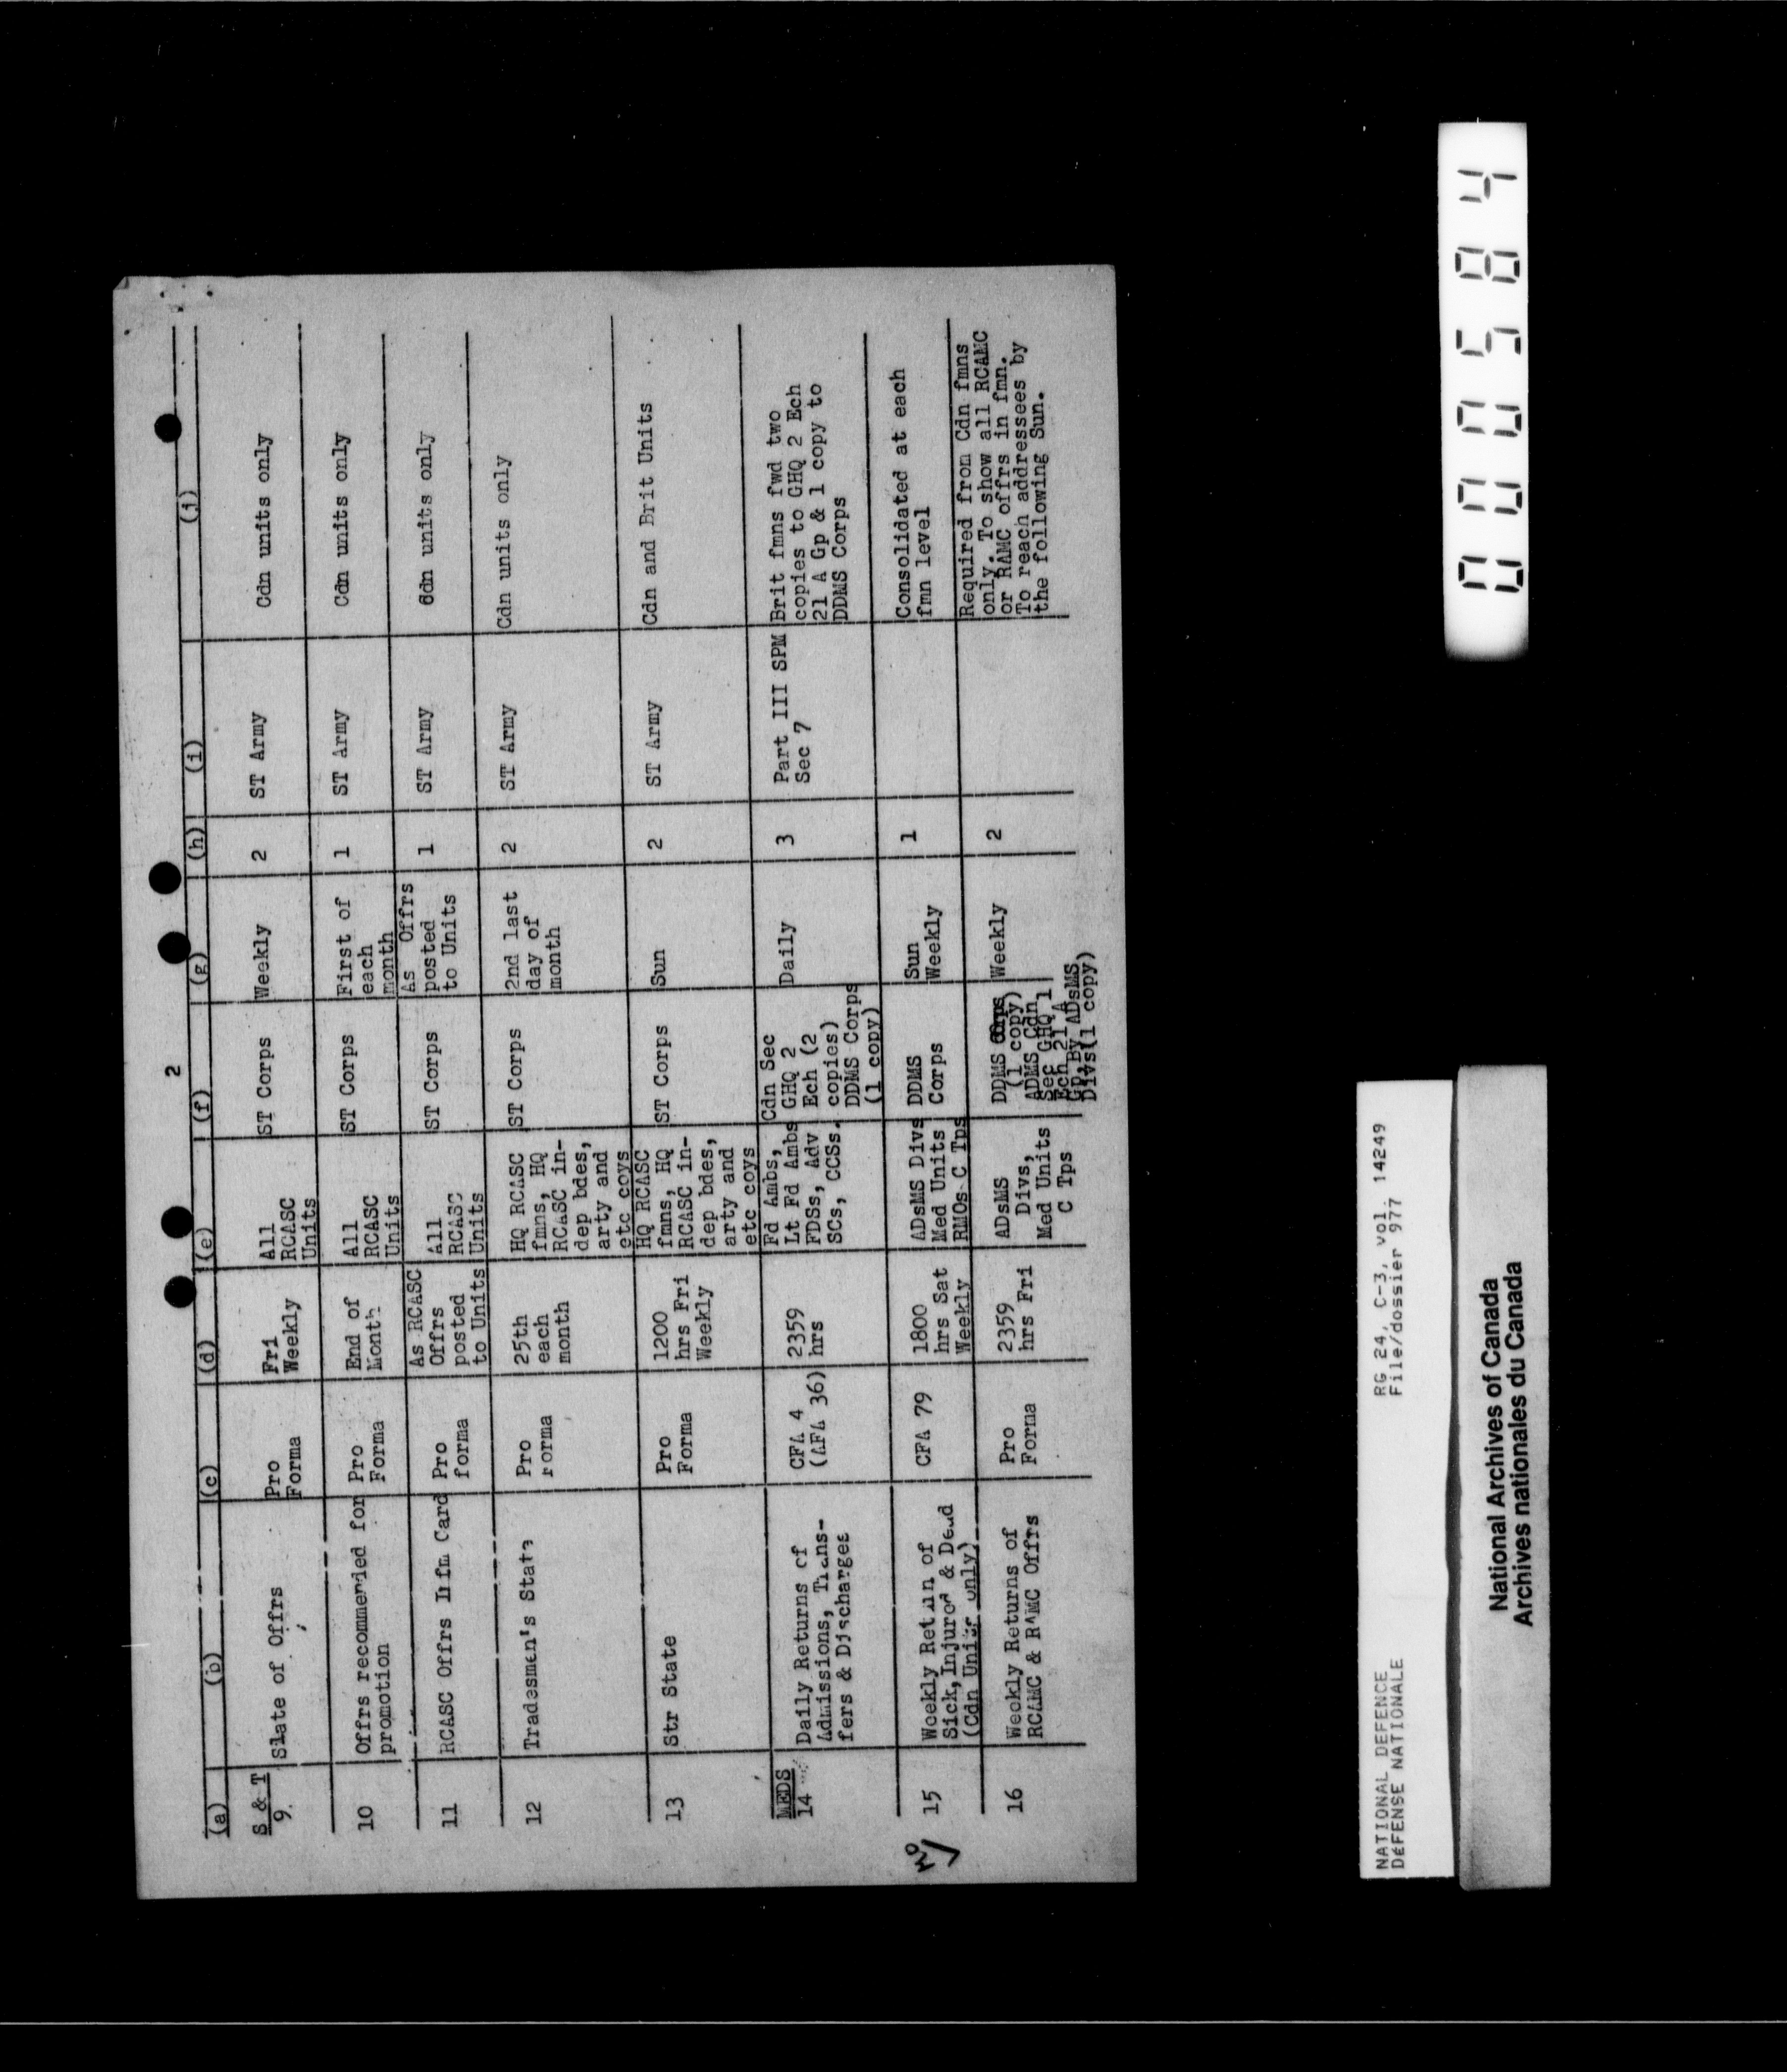 2
(a) (b) (c) (d) (e) (f) (g) (h) (i) (j)
S & T
9. State of Offrs
Pro
Forma
Fri
Weekly
All
RCASC
Units
ST Corps
Weekly
2
ST Army
Cdn units only
10
Offrs recommended for
promotion
Pro
Forma
End of
Month
All
RCASC
Units
ST Corps
First of
each
month
1
ST Army
Cdn units only
11
RCASC Offrs Card
Pro
forma
As RCASC
Offrs
posted
to Units
All
RCASC
Units
ST Corps
As Offrs
posted
to Units
1
ST Army
6dn units only
12
Tradesmen's State
Pro
Forma
25th
each
month
HQ RCASC
fmns, HQ
RCASC in-
dep bdes,
arty and
etc coys
ST Corps
2nd last
day of
month
2
ST Army
Cdn units only
13
Str State
Pro
Forma
1200
hrs Fri
Weekly
HQ RCASC
fmns, HQ
RCASC in-
dep bdes,
arty and
etc coys
ST Corps
Sun
2
ST Army
Cdn and Brit Units
MEDS
14
Daily Returns of
Admissions, Trans-
fers & Discharges
CFA 4
(AFA 36)
2359
hrs
Fd Ambs,
Lt Fd Ambs
FDSs, Adv
SCs, CCSs.
Cdn Sec
GHQ 2
Ech (2
copies)
DDMS Corps
(1 copy)
Daily
3
Part III SPM
Sec 7
Brit fmns fwd two
copies to GHQ 2 Ech
21 A Gp & 1 copy to
DDMS Corps
15
Weekly Return of
Sick, Injured & Dead
(Cdn Units only)
CFA 79
1800
hrs Sat
Weekly
ADsMS Divs
Med Units
RMOs C Tps
DDMS
Corps
Sun
Weekly
1
Consolidated at each
fmn level
16
Weekly Returns of
RCAMC & RAMC Offrs
Pro
Forma
2359
hrs Fri
ADsMS
Divs,
Med Units
C Tps
DDMS Corps
(1 copy)
ADMS Cdn
Sec GHQ 1
Ech 21 A
Gp, By ADsMS
Divs(1 copy)
Weekly
2
Required from Cdn fmns
only. To show all RCAMC
or RAMC offrs in fmn.
To reach addressees by
the following Sun.
NATIONAL DEFENCE RG 24, C-3, vol. 14249
DÉFENSE NATIONALE File/dossier 977
National Archives of Canada
Archives nationales du Canada
000584